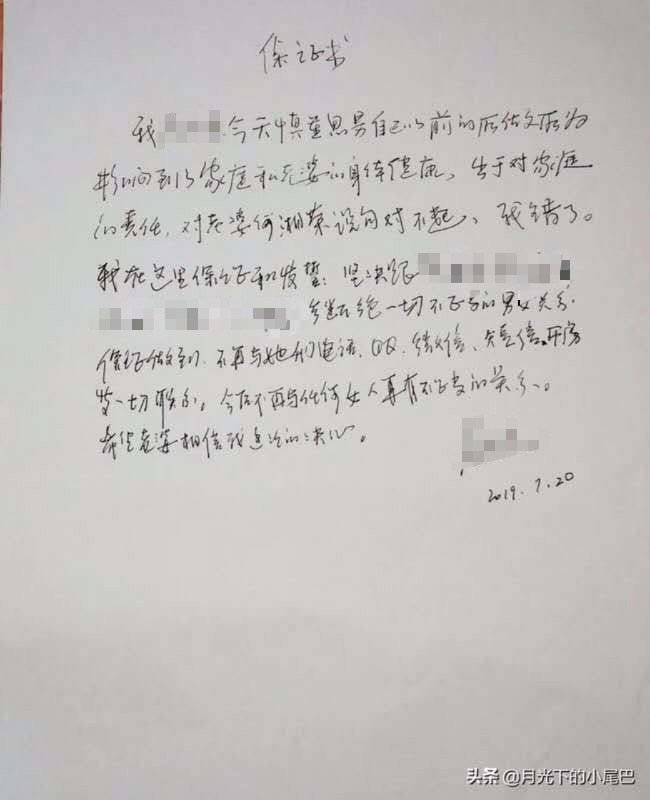 保证书
我 今天慎重思量自己以前的所做文所为
影响到了家庭和老婆的身体健康，出于对家庭
的责任，对老婆何湘荣说句对不起、我错了。
我在这里保证和发誓：坚决跟
断绝一切不正当的男女关系.
保证做到，不再与她们电话、QQ、微信、短信、开房
发一切联系，今后不再与任何女人再有不正当的关系、
希望老婆相信我这次的决心。
2019.7.20
头条 @月光下的小尾巴